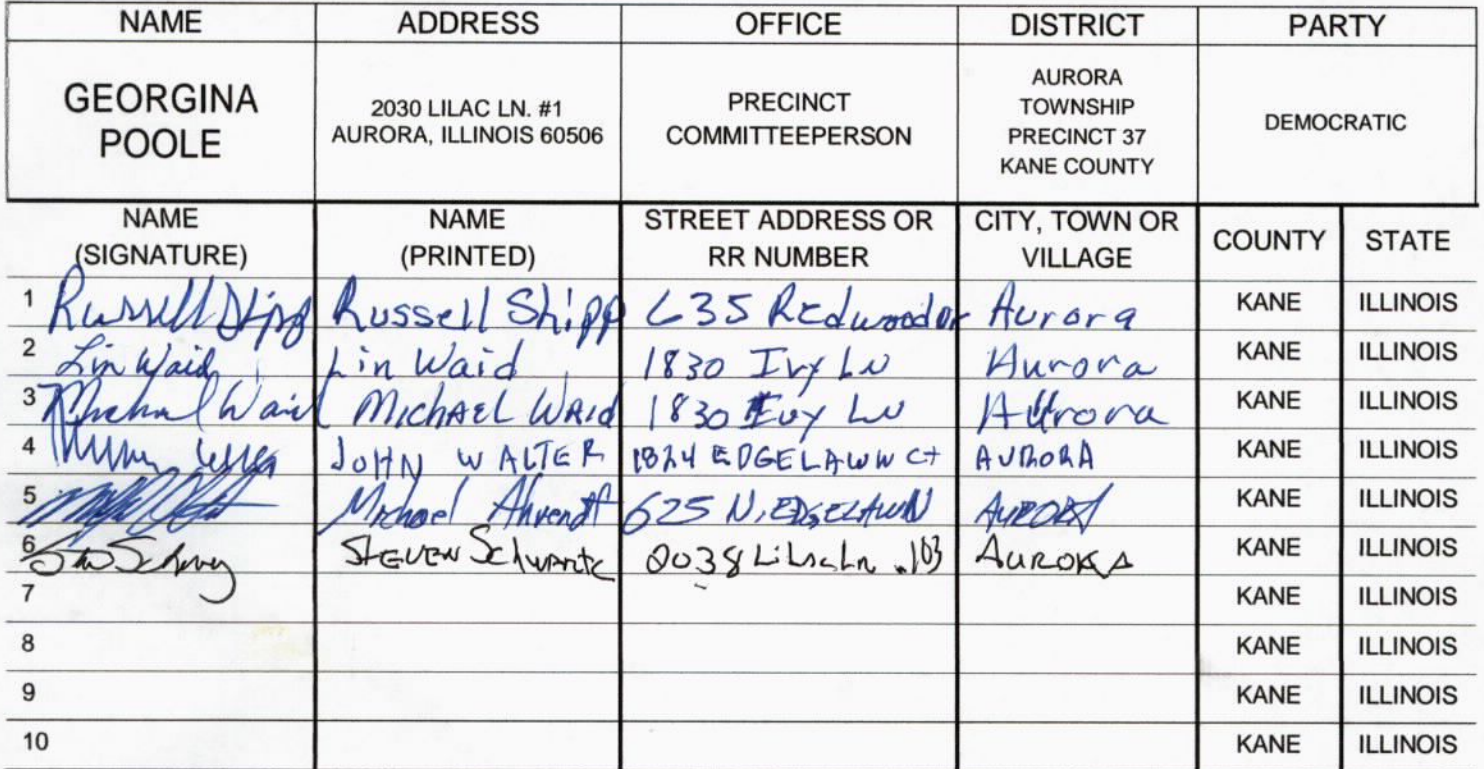 NAME ADDRESS OFFICE DISTRICT PARTY
GEORGINA POOLE 2030 LILAC LN. #1 AURORA, ILLINOIS 60506 PRECINCT COMMITTEEPERSON AURORA TOWNSHIP PRECINCT 37 KANE COUNTY DEMOCRATIC
NAME (SIGNATURE) NAME (PRINTED) STREET ADDRESS OR RR NUMBER CITY, TOWN OR VILLAGE COUNTY STATE
1 Russell Shipp Russell Shipp 635 Redwood Dr Aurora KANE ILLINOIS
2 Lin Waid Lin Waid 1830 Ivy Ln Aurora KANE ILLINOIS
3 Michael Waid MICHAEL WAID 1830 Ivy Ln Aurora KANE ILLINOIS
4 JOHN WALTER 1824 EDGELAWN Ct AURORA KANE ILLINOIS
5 Michael Ahrendt 625 N. EDGELAWN AURORA KANE ILLINOIS
6 STEVEN Schwartz 2038 Lilac Ln .103 AURORA KANE ILLINOIS
7 KANE ILLINOIS
8 KANE ILLINOIS
9 KANE ILLINOIS
10 KANE ILLINOIS